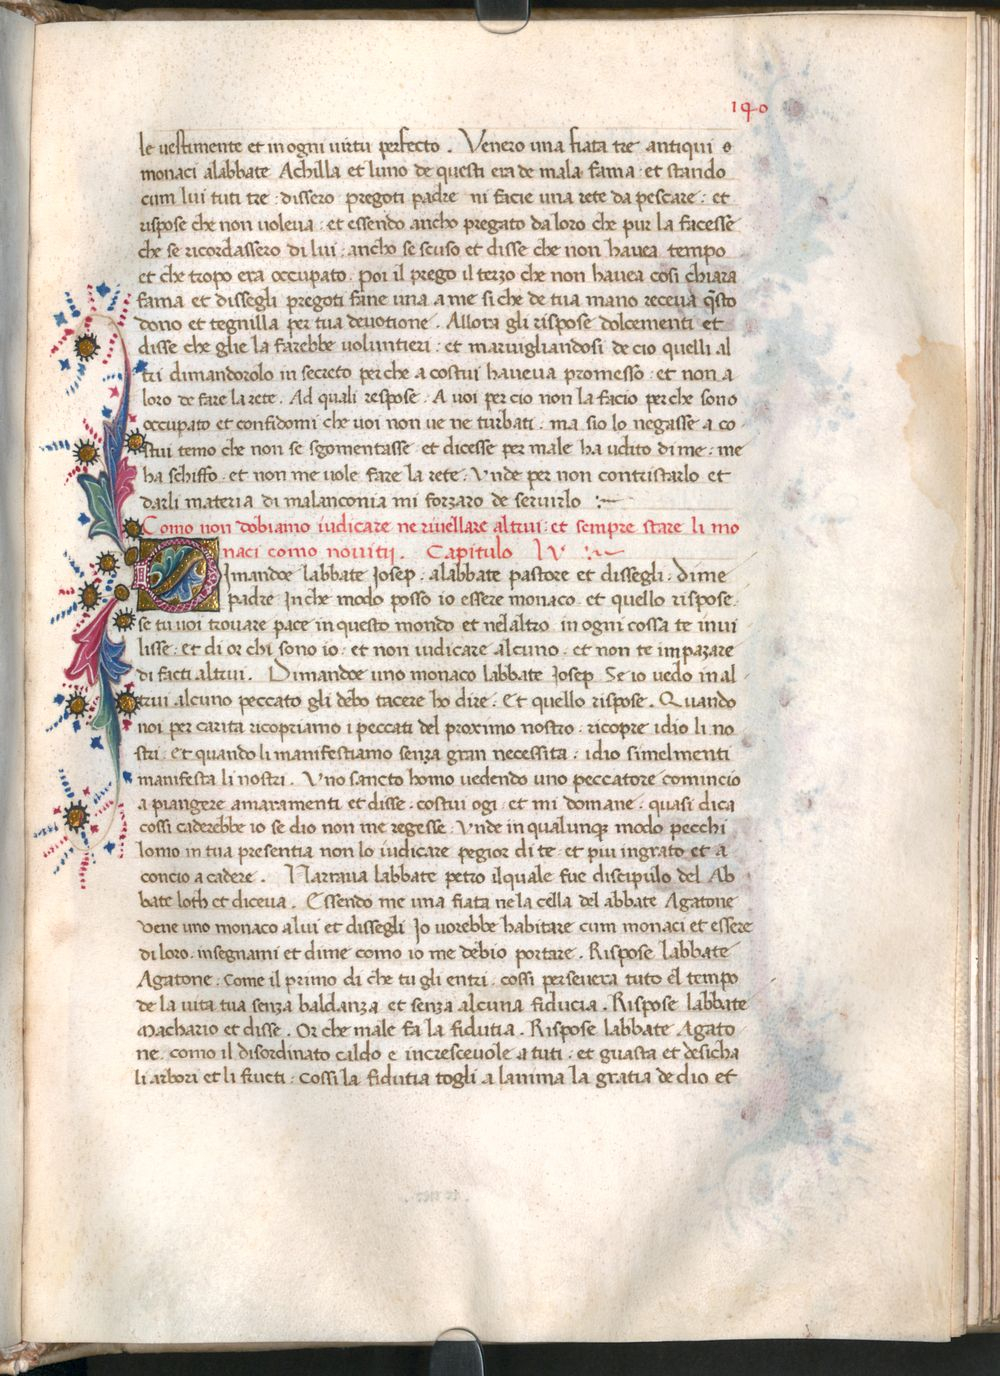 140
le vestimente et in ogni virtu perfecto . Venero una fiata tre antiqui e
monaci alabbate Achilla et luno de questi era de mala fama · et stando
cum lui tuti tre · dissero pregoti padre ni facie una rete da pescare : et
rispose che non voleva · et essendo ancho pregato da loro che pur la facesse
che se ricordassero di lui · ancho se scuso et disse che non havea tempo
et che tropo era occupato . Poi il prego il terzo che non havea cosi chiara
fama et dissegli pregoti fane una a me si che de tua mano receva qsto
dono et tegnilla per tua devotione . Allora gli rispose dolcementi et
disse che glie la farebbe voluntieri : et maravigliandosi de cio quelli al
tri dimandorolo in secreto perche a costui haveva promesso · et non a
loro de fare la rete . Ad quali respose · A voi per cio non la facio perche sono
occupato et confidomi che voi non ve ne turbati : ma sio lo negasse a co
stui temo che non se sgomentasse et dicesse per male ha udito di me : me
ha schiffo · et non me vole fare la rete : Unde per non contristarlo et
darli materia di malanconia mi forzaro de servirlo :~
Como non dobiamo iudicare ne rivellare altrui · et sempre stare li mo
naci como novitij . Capitulo lv :~
Dimandoe labbate Iosep · alabbate pastore et dissegli · Dime
padre In che modo posso io essere monaco · et quello rispose ·
se tu voi trouare pace in questo mondo et nel altro in ogni cossa te invi
lisse · et di or chi sono io · et non iudicare alcuno · et non te impazare
di facti altrui . Dimandoe uno monaco labbate Iosep Se io vedo in al
trui alcuno peccato gli debo tacere ho dire . Et quello rispose . Quando
noi per carita ricopriamo i peccati del proximo nostro : ricopre idio li no
stri : et quando li manifestiamo senza gran necessita : idio simelmenti
manifesta li nostri . Uno sancto homo vedendo uno peccatore comincio
a piangere amaramenti et disse · costui ogi · et mi domane · quasi dica
cossi caderebbe io se dio non me regesse · Unde in qualunqz modo pecchi
lomo in tua presentia non lo iudicare pegior di te · et piu ingrato et a
concio a cadere . Narrava labbate petro ilquale fue discipulo del Ab
bate loth et diceva . Essendo me una fiata ne la cella del abbate Agatone
vene uno monaco a lui et dissegli Io vorebbe habitare cum monaci et essere
di loro · insegnami et dime como io me debio portare . Rispose labbate
Agatone : Come il primo di che tu gli entri · cossi persevera tuto el tempo
de la vita tua senza baldanza et senza alcuna fiducia . Rispose labbate
Machario et disse . Or che male fa la fidutia . Rispose labbate Agato
ne · como il disordinato caldo e increscevole a tuti : et guasta et desicha
li arbori et li fructi : Cossi la fidutia togli a lanima la gratia de dio et